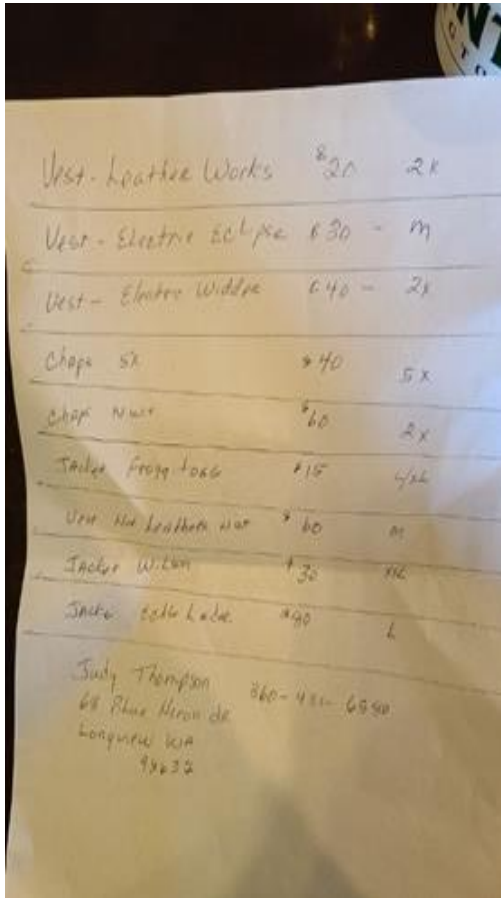 Vest - Leather Works $20 2X
Vest - Electric Eclipse $30 - M
Vest - Electric Widder $40 - 2X
Chaps 5X $40 5X
Chaps NWT $60 2X
Jacket Frogg Togg $15 L/XL
Vest Hot Leathers NWT $60 M
Jacket Wilson $30
Jacket L
Judy Thompson 360-
68 Blue Heron dr
Longview WA
98632